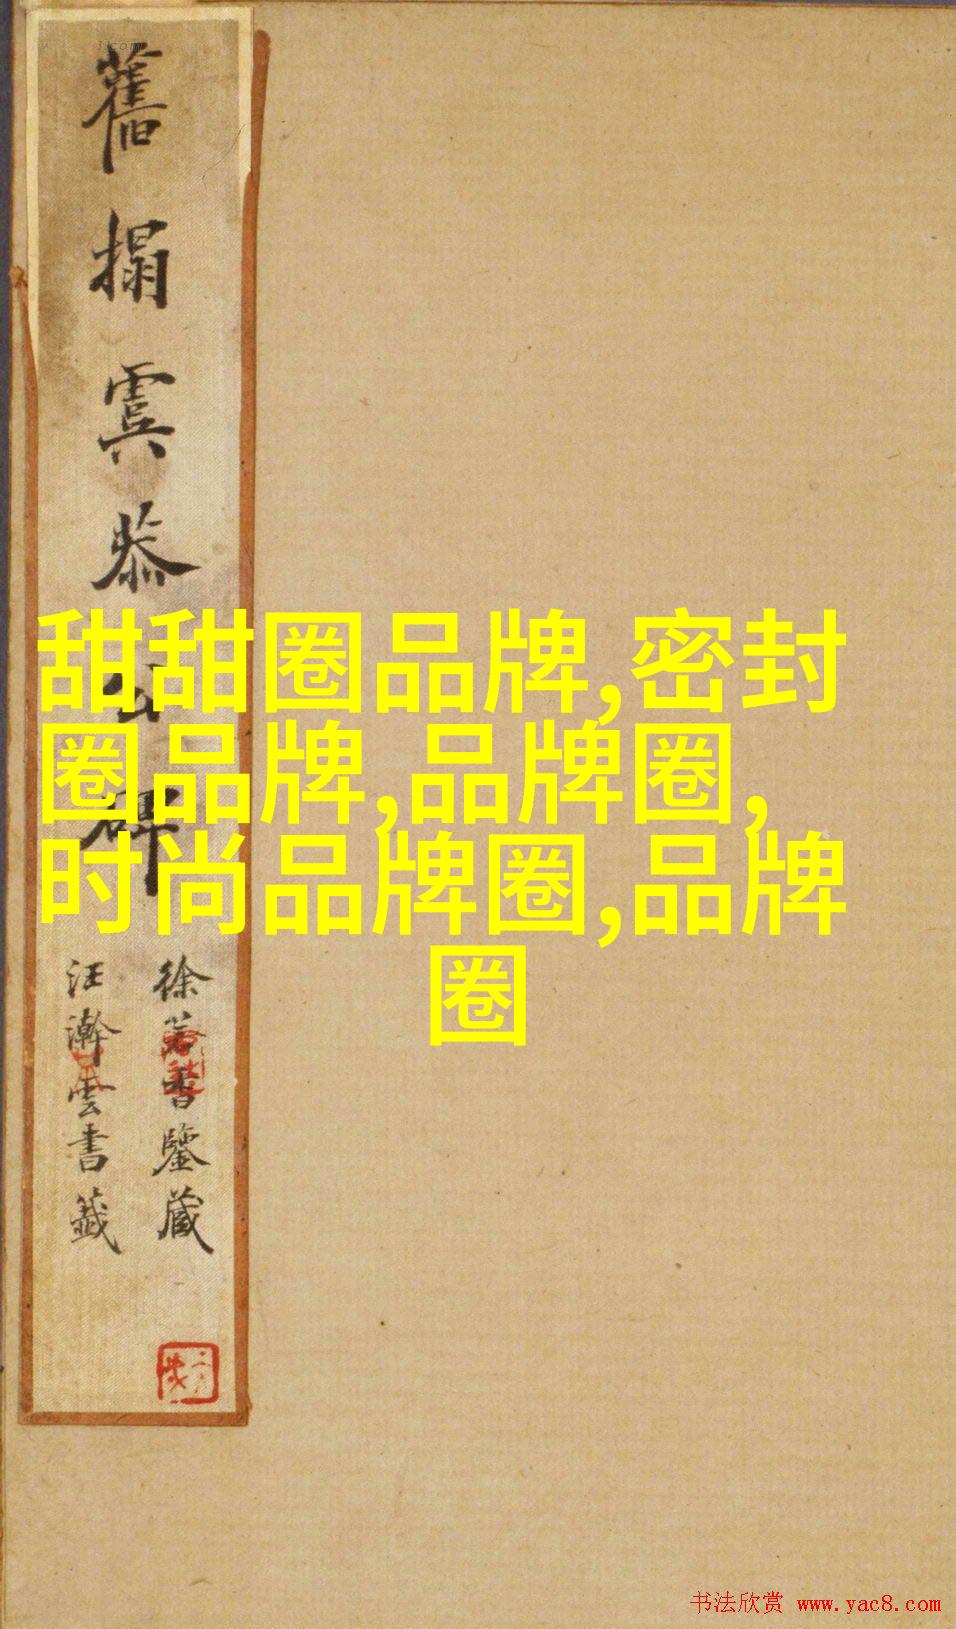 舊搨虞恭公碑
徐若書鑒藏
汪澣雲書籤
甜甜圈品牌,密封
圈品牌,品牌圈,
时尚品牌圈,品牌
圈
书法欣赏 www.yac8.com